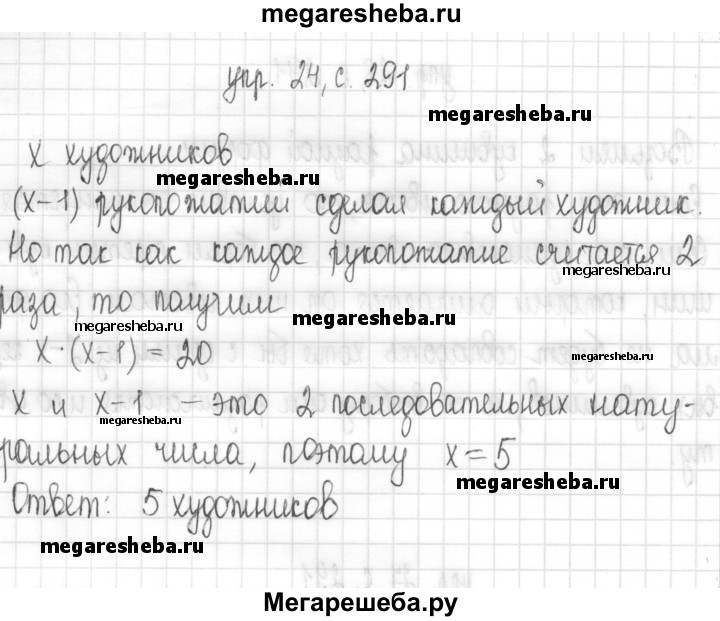 megaresheba.ru
упр. 24, с. 291
megaresheba.ru
х художников
megaresheba.ru
(х-1) рукопожатий сделал каждый художник.
Но так как каждое рукопожатие считается 2
megaresheba.ru
раза, то получим
megaresheba.ru
megaresheba.ru
х·(х-1) = 20
megaresheba.ru
х и х-1 – это 2 последовательных нату-
megaresheba.ru
ральных числа, поэтому х = 5
megaresheba.ru
Ответ: 5 художников
megaresheba.ru
megaresheba.ru
Мегарешеба.ру